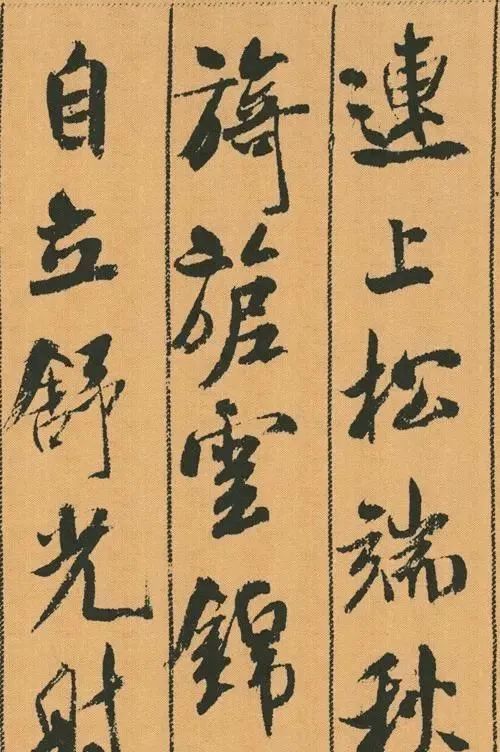 連上松端秋
旖旎雲錦
自立舒光射